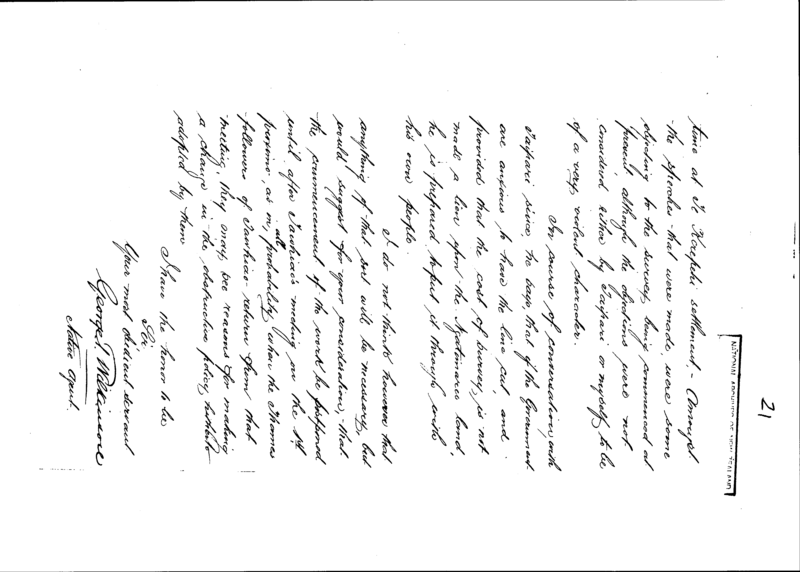 21
NATIONAL ARCHIVES OF NEW ZEALAND
time at Te Kerepehi settlement, - Amongst
the speeches that were made, were some
objecting to the survey being commenced at
present although the objections were not
considered either by Taipari or myself to be
of a very violent character.
In course of conversation with
Taipari since he says, that if the Government
are anxious to have the line cut, and
provided that the cost of survey is not
made a lien upon the Ngatimaru land,
he is prepared to put it through with
his own people.
I do not think however that
anything of that sort will be necessary, but
would suggest for your consideration, that
the commencement of the work be postponed
until after Tawhiao's meeting on the
proximo, as in all probability when the Thames
followers of Tawhiao return from that
meeting, they may see reasons for making
a change in the obstructive policy hitherto
adopted by them
I have the honor to be
Sir
Your most obedient servant
George T Wilkinson
Native Agent.